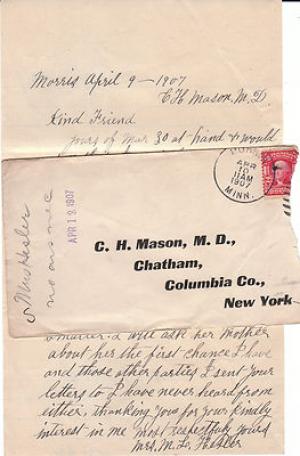 Morris April 9 — 1907
C H Mason, M. D.
Kind Friend
yours of Mar 30 at hand & would
APR
10
11 AM
1907
MINN.
Mrs Hesler
no ans nec
APR 19 1907
C. H. Mason, M. D.,
Chatham,
Columbia Co.,
New York
matter. I will ask her Mother
about her the first chance I have
and those other parties I sent your
letters to I have never heard from
either, thanking you for your kindly
interest in me most respectfully yours
Mrs. M. L. Hesler